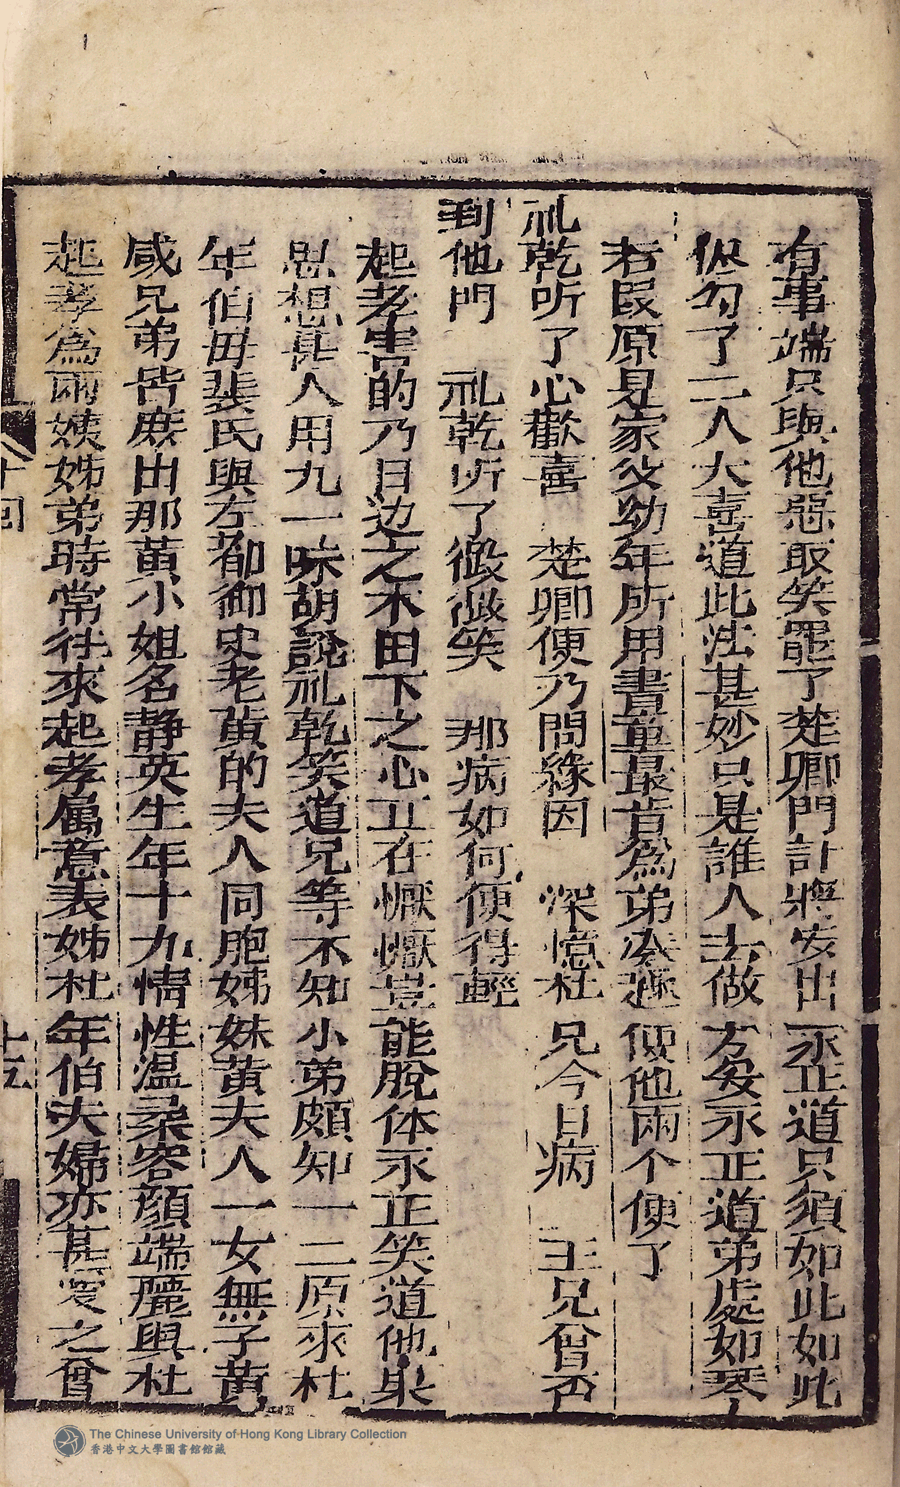 有事端只與他惡取笑罷了楚卿門計將安出永正道只須如此如此
俱勾了二人大喜道此法甚妙只是誰人去做方妥永正道弟處如琴
若民原是家父幼年所用書童最肯為弟湊趣使他兩个便了
礼乾听了心歡喜楚卿便乃問緣因深憶杜兄今日病王兄曾否
到他門礼乾听了微微笑那病如何便得輕
起孝害的乃日边之木田下之心豆在懨懨豈能脫体永正笑道他果
思想甚人用九一味胡說礼乾笑道兄等不知小弟頗知一二原來杜
年伯毋裴氏與左都御史老黃的夫人同胞姊妹黃夫人一女無子黃
咸兄弟皆庶出那黃小姐名靜英生年十九情性温柔容顏端麗與杜
起孝為兩姨姊弟時常往來起孝属意表姊杜年伯夫婦亦甚愛之曾
十回
十五
The Chinese University of Hong Kong Library Collection
香港中文大學圖書館館藏